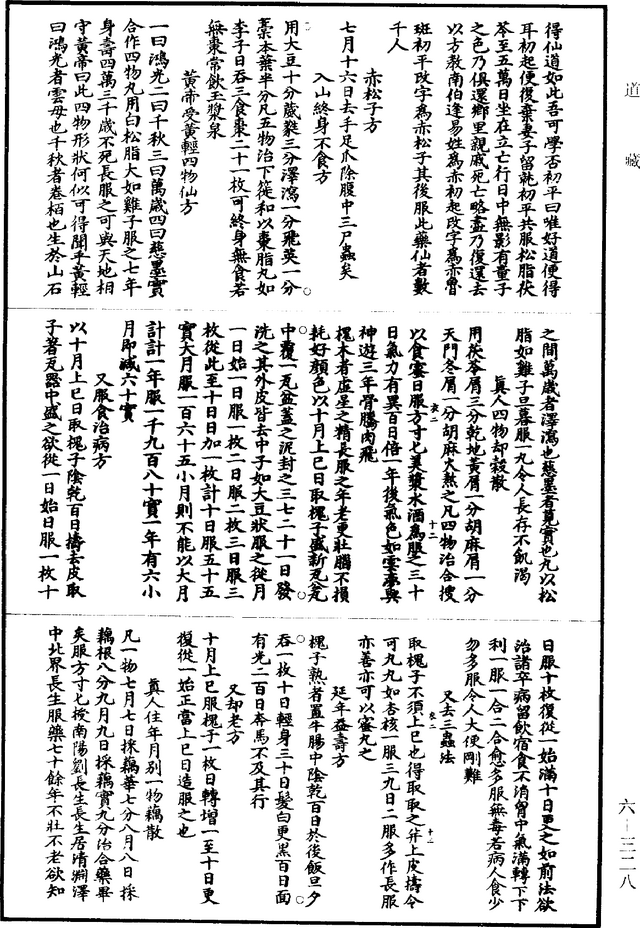 道藏
得仙道如此吾可學否初平曰唯好道便得
耳初起便復棄妻子留就初平共服松脂茯
苓至五萬日坐在立亡行日中無影有童子
之色乃俱還鄉里親戚死亡略盡乃復還去
以方教南伯逢易姓為赤初起改字為赤魯
班初平改字為赤松子其後服此藥仙者數
千人
赤松子方
七月十六日去手足爪除腹中三尸蟲矣
入山終身不食方
用大豆十分葳蕤三分澤瀉一分飛英一分
藁本葉半分凡五物治下簁和以棗脂丸如
李子日吞三食棗二十一枚可終身無食若
無棗常飲玉漿泉
黃帝受黃輕四物仙方
一曰鴻光二曰千秋三曰萬歲四曰慈墨實
合作四物丸用白松脂大如雞子服之七年
身壽四萬三千歲不死長服之可與天地相
守黃帝曰此四物形狀何似可得聞乎黃輕
曰鴻光者雲母也千秋者卷栢也生於山石
之間萬歲者澤瀉也慈墨者莧實也九以松
脂如雞子旦暮服一九令人長存不飢渴
真人四物却穀散
用茯苓屑三分乾地黃屑一分胡麻屑一分
天門冬屑一分胡麻大熬之凡四物治合搜
以食蜜日服方寸七美漿水酒為服之三十
日氣力有異百日倍一年後氣色如雲車與
神遊三年骨騰肉飛
槐木者虛星之精長服之年老更壯腦不損
耗好顏色以十月上巳日取槐子盛新瓦瓮
中覆一瓦盆蓋之泥封之三七二十一日發
洗之其外皮皆去中子如大豆狀服之從月
一日始一日服一枚二日服二枚三日服三
枚從此至十日日加一枚計十日服五十五
實大月服一百六十五小月則不能以大月
計計一年服一千九百八十實一年有六小
月即減六十實
又服食治病方
以十月上巳日取槐子陰乾百日擣去皮取
子著瓦器中盛之欲從一日始日服一枚十
日服十枚復從一始滿十日更之如前法欲
治諸卒病留飲宿食不消胷中氣滿轉下下
利一服一合二合愈多服無毒若病人食少
勿多服令人大便剛難
又去三蟲法
取槐子不須上巳也得取取之并上皮擣令
可九九如杏核一服三九日二服多作長服
亦善亦可以蜜九之
延年益壽方
槐子熟者置牛腸中陰乾百日於後飯旦夕
吞一枚十日輕身三十日髮白更黑百日面
有光二百日奔馬不及其行
又却老方
十月上巳服槐子一枚日轉增一至十日更
復從一始正當上巳日造服之也
真人住年月別一物藕散
凡一物七月七日採藕華七分八月八日採
藕根八分九月九日採藕實九分治合藥畢
矣服方寸七按南陽劉長生長生居清淵澤
中北界長生服藥七十餘年不壯不老欲知
六－三二八